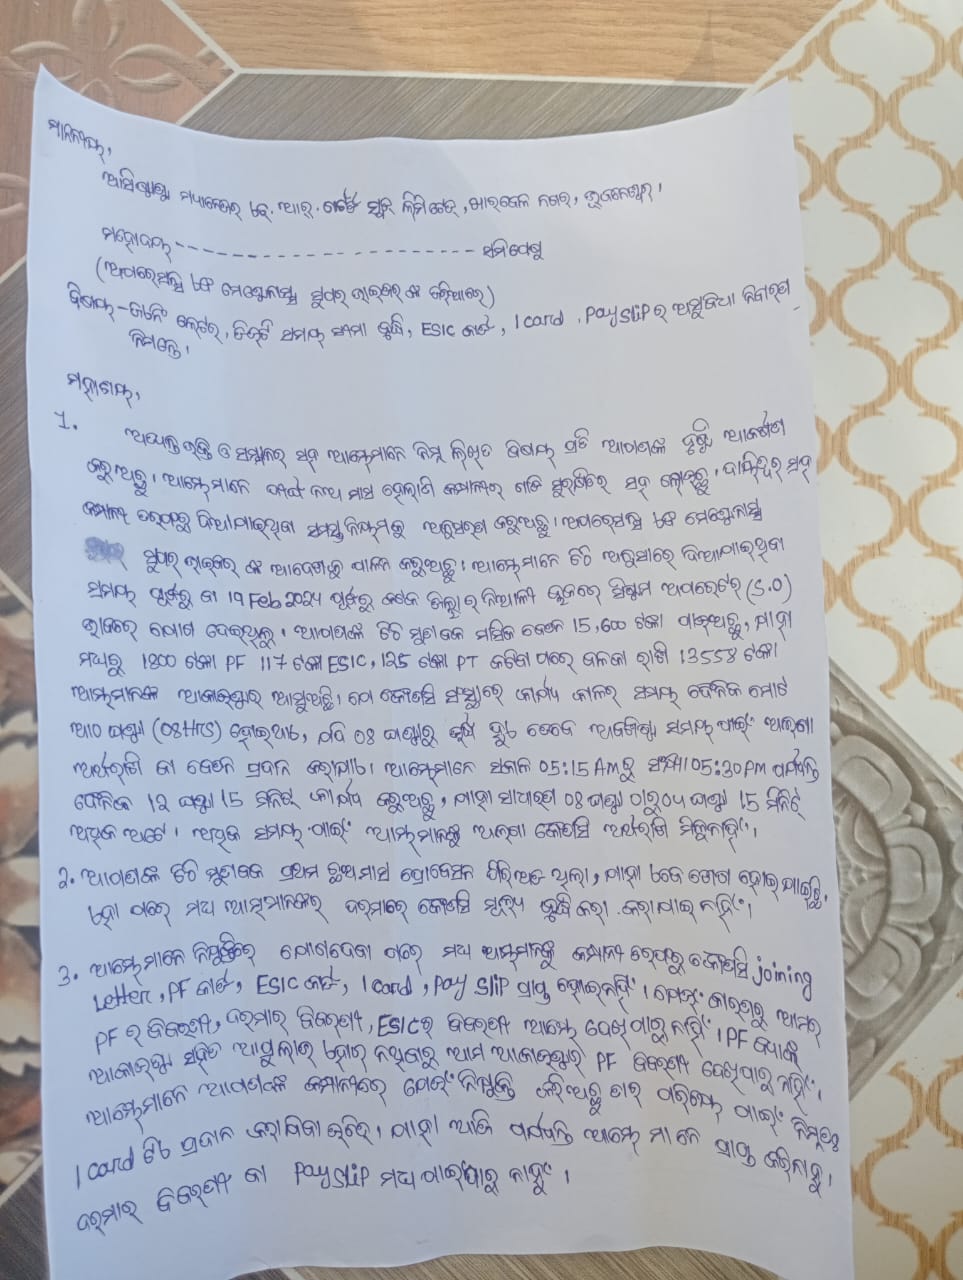 ମାନନୀୟ,
ଆସିଷ୍ଟାଣ୍ଟ ମ୍ୟାନେଜର ଇନଫ୍ରା ଲିମିଟେଡ, ଭୁବନେଶ୍ୱର ।
ମହୋଦୟ - - - - - - - - - - - - - - - - - - - - - - ସମିପେଷୁ
(ଅପରେସନ୍ସ ଏବଂ ମେଣ୍ଟେନାନ୍ସ ସୁପର ଭାଇଜର ଙ୍କ ଜରିଆରେ)
ବିଷୟ - ଜଏନିଂ ଲେଟର, ଡିଉଟି ସମୟ ଦରମା ବୃଦ୍ଧି, ESIC କାର୍ଡ, I card, Pay slip ର ଅସୁବିଧା ନିବାରଣ
ନିମନ୍ତେ ।
ମହାଶୟ,
1. ଅତ୍ୟନ୍ତ ଭକ୍ତି ଓ ସମ୍ମାନର ସହ ଆମ୍ଭେମାନେ ନିମ୍ନ ଲିଖିତ ବିଷୟ ପ୍ରତି ଆପଣଙ୍କ ଦୃଷ୍ଟି ଆକର୍ଷଣ
କରୁଅଛୁ । ଆମ୍ଭେମାନେ ମାସ ହେଲାଣି କମ୍ପାନୀର ସହ
କମ୍ପାନୀ ତରଫରୁ ଦିଆଯାଇଥିବା ସମସ୍ତ ନିୟମକୁ ଅନୁସରଣ କରୁଅଛୁ । ଅପରେସନ୍ସ ଏବଂ ମେଣ୍ଟେନାନ୍ସ
ସୁପର ଭାଇଜର ଙ୍କ ଆଦେଶକୁ ପାଳନ କରୁଅଛୁ । ଆମ୍ଭେମାନେ ଚିଠି ଅନୁସାରେ ଦିଆଯାଇଥିବା
ସମୟ ପୂର୍ବରୁ ବା 19 Feb 2024 ପୂର୍ବରୁ କଟକ ଜିଲ୍ଲାର ନିଆଳି ବ୍ଲକରେ ସିଷ୍ଟମ ଅପରେଟର (S.O)
ଭାବରେ ଯୋଗ ଦେଇଥିଲୁ । ଆପଣଙ୍କ ଚିଠି ମୁତାବକ ମାସିକ ବେତନ 15,600 ଟଙ୍କା ପାଇଅଛୁ, ଯାହା
ମଧ୍ୟରୁ 1800 ଟଙ୍କା PF 117 ଟଙ୍କା ESIC, 125 ଟଙ୍କା PT କଟିବା ପରେ ବଳକା ରାଶି 13558 ଟଙ୍କା
ଆମ୍ଭମାନଙ୍କ ଆକାଉଣ୍ଟର ଆସୁଅଛି । ଯେ କୌଣସି ସଂସ୍ଥାରେ କାର୍ଯ୍ୟ କାଳର ସମୟ ଦୈନିକ ମୋଟ
ଆଠ ଘଣ୍ଟା (08 Hrs) ହୋଇଥାଏ, ଯଦି 08 ଘଣ୍ଟାରୁ ଉର୍ଦ୍ଧ ହୁଏ ତେବେ ଅତିରିକ୍ତ ସମୟ ପାଇଁ ଅଲଗା
ଅର୍ଥରାଶି ବା ବେତନ ପ୍ରଦାନ କରାଯାଏ । ଆମ୍ଭେମାନେ ସକାଳ 05:15 AM ରୁ ସନ୍ଧ୍ୟା 05:30 PM ପର୍ଯ୍ୟନ୍ତ
ଦୈନିକ 12 ଘଣ୍ଟା 15 ମିନିଟ୍ କାର୍ଯ୍ୟ କରୁଅଛୁ, ଯାହା ସାଧାରଣ 08 ଘଣ୍ଟା ଠାରୁ 04 ଘଣ୍ଟା 15 ମିନିଟ୍
ଅଧିକ ଅଟେ । ଅଧିକ ସମୟ ପାଇଁ ଆମ୍ଭମାନଙ୍କୁ ଅଲଗା କୌଣସି ଅର୍ଥରାଶି ମିଳୁନାହିଁ ।
2. ଆପଣଙ୍କ ଚିଠି ମୁତାବକ ପ୍ରଥମ ଛଅ ମାସ ପ୍ରୋବେସନ ପିରିଅଡ ଥିଲା, ଯାହା ଏବେ ଶେଷ ହୋଇଯାଇଛି,
ଏହା ପରେ ମଧ୍ୟ ଆମ୍ଭମାନଙ୍କର ଦରମାରେ କୌଣସି ବୃଦ୍ଧି କରା କରାଯାଇ ନାହିଁ ।
3. ଆମ୍ଭେମାନେ ନିଯୁକ୍ତିରେ ଯୋଗଦେବା ପରେ ମଧ୍ୟ ଆମ୍ଭମାନଙ୍କୁ କମ୍ପାନୀ ତରଫରୁ କୌଣସି joining
Letter, PF କାର୍ଡ, ESIC କାର୍ଡ, I card, Pay slip ପ୍ରାପ୍ତ ହୋଇନାହିଁ । ଯେଉଁ କାରଣରୁ ଆମର
PF ର ବିବରଣୀ, ଦରମାର ବିବରଣୀ, ESIC ର ବିବରଣୀ ଆମ୍ଭେ ଦେଖିପାରୁ ନାହିଁ । PF
ଆକାଉଣ୍ଟ ସହିତ ହୋଇ ନଥିବାରୁ ଆମ ଆକାଉଣ୍ଟର PF ବିବରଣୀ ଦେଖିପାରୁ ନାହିଁ ।
ଆମ୍ଭେମାନେ ଆପଣଙ୍କ କମ୍ପାନୀରେ ଯେଉଁ ନିଯୁକ୍ତି କରିଅଛୁ ତାର ପରିଚୟ ପାଇଁ
I card ଟିଏ ପ୍ରଦାନ କରାଯିବା ଉଚିତ୍, ଯାହା ଆଜି ପର୍ଯ୍ୟନ୍ତ ଆମ୍ଭେ ମାନେ ପ୍ରାପ୍ତ କରିନାହୁଁ ।
ଦରମାର ବିବରଣୀ ବା Pay slip ମଧ୍ୟ ପାଇପାରୁ ନାହୁଁ ।